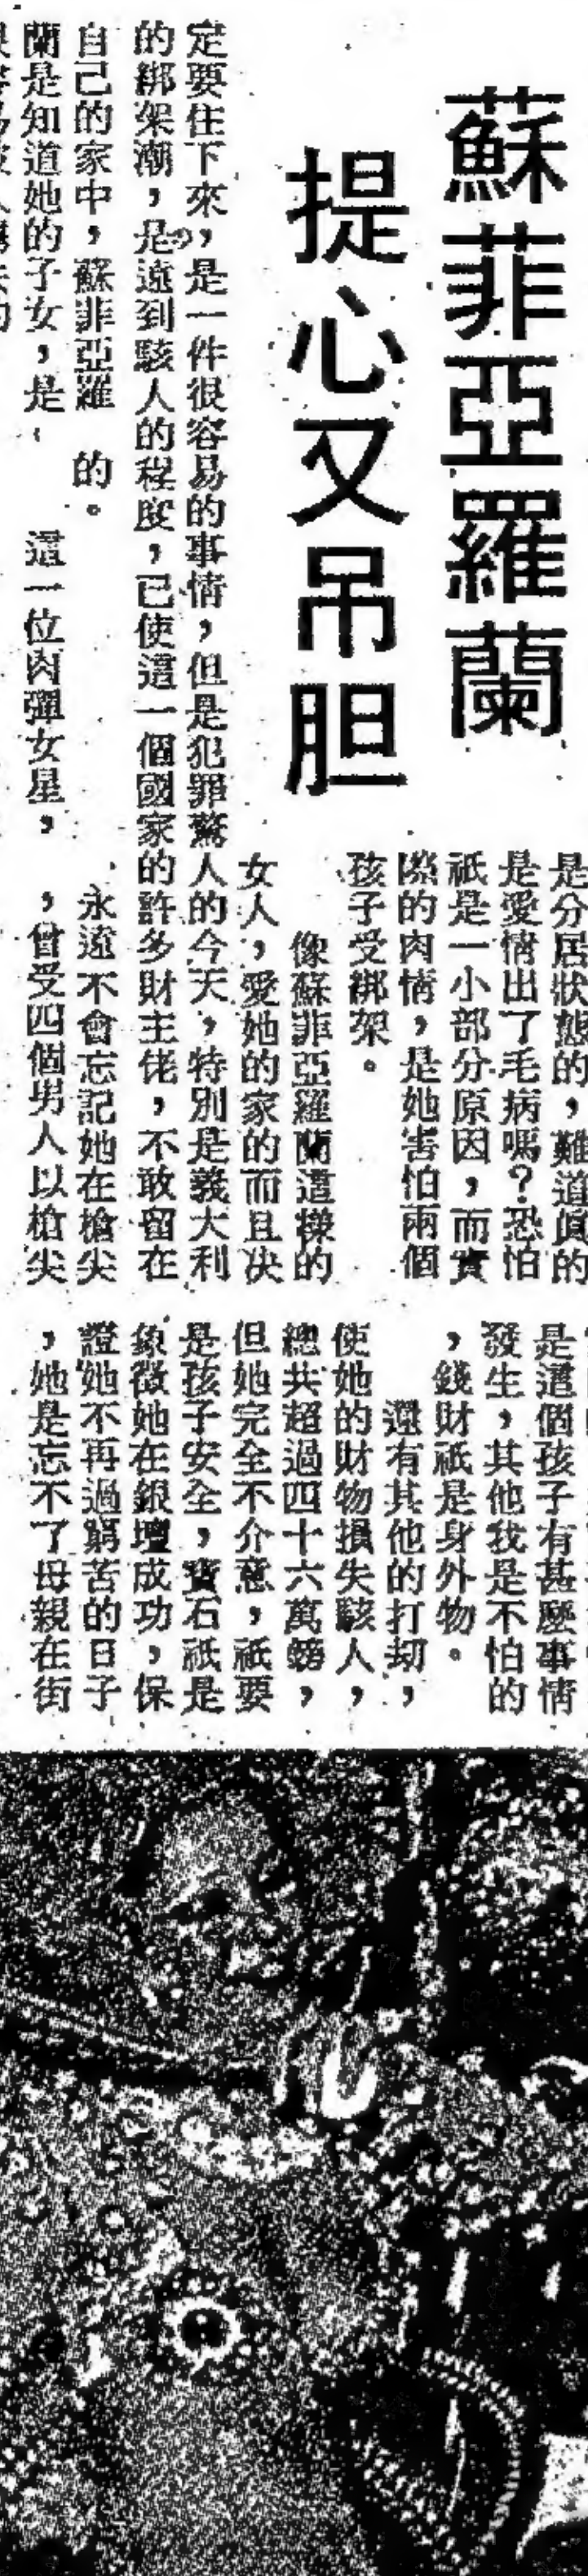 蘇菲亞羅蘭
提心又吊胆
是分居狀態的，難道眞的
是愛情出了毛病嗎？恐怕
祇是一小部分原因，而實
際的內情，是她害怕兩個
孩子受綁架。
像蘇菲亞羅蘭這樣的
女人，愛她的家的而且决
定要住下來，是一件很容易的事情，但是犯罪驚人的今天，特別是義大利
的綁架潮，是遠到駭人的程度，已使這一個國家的許多財主佬，不敢留在
自己的家中，蘇菲亞羅
蘭是知道她的子女，是
的。
這一位肉彈女星，
永遠不會忘記她在槍尖
，曾受四個男人以槍尖
是這個孩子有甚麼事情
發生，其他我是不怕的
，錢財祇是身外物。
還有其他的打刧，
使她的財物損失駭人，
總共超過四十六萬鎊，
但她完全不介意，祇要
是孩子安全，寶石祇是
象徵她在銀壇成功，保
證她不再過窮苦的日子
，她是忘不了母親在街